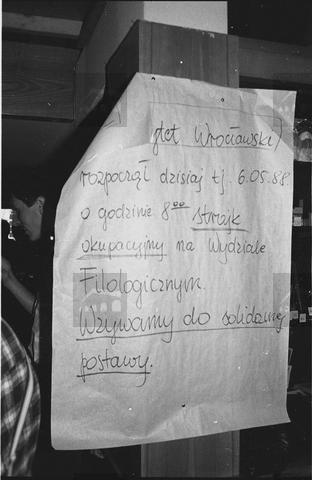 Wrocławski)
rozpoczął dzisiaj tj. 6.05.88.
o godzinie 8⁰⁰ strajk
okupacyjny na Wydziale
Filologicznym.
Wzywamy do solidarnej
postawy.